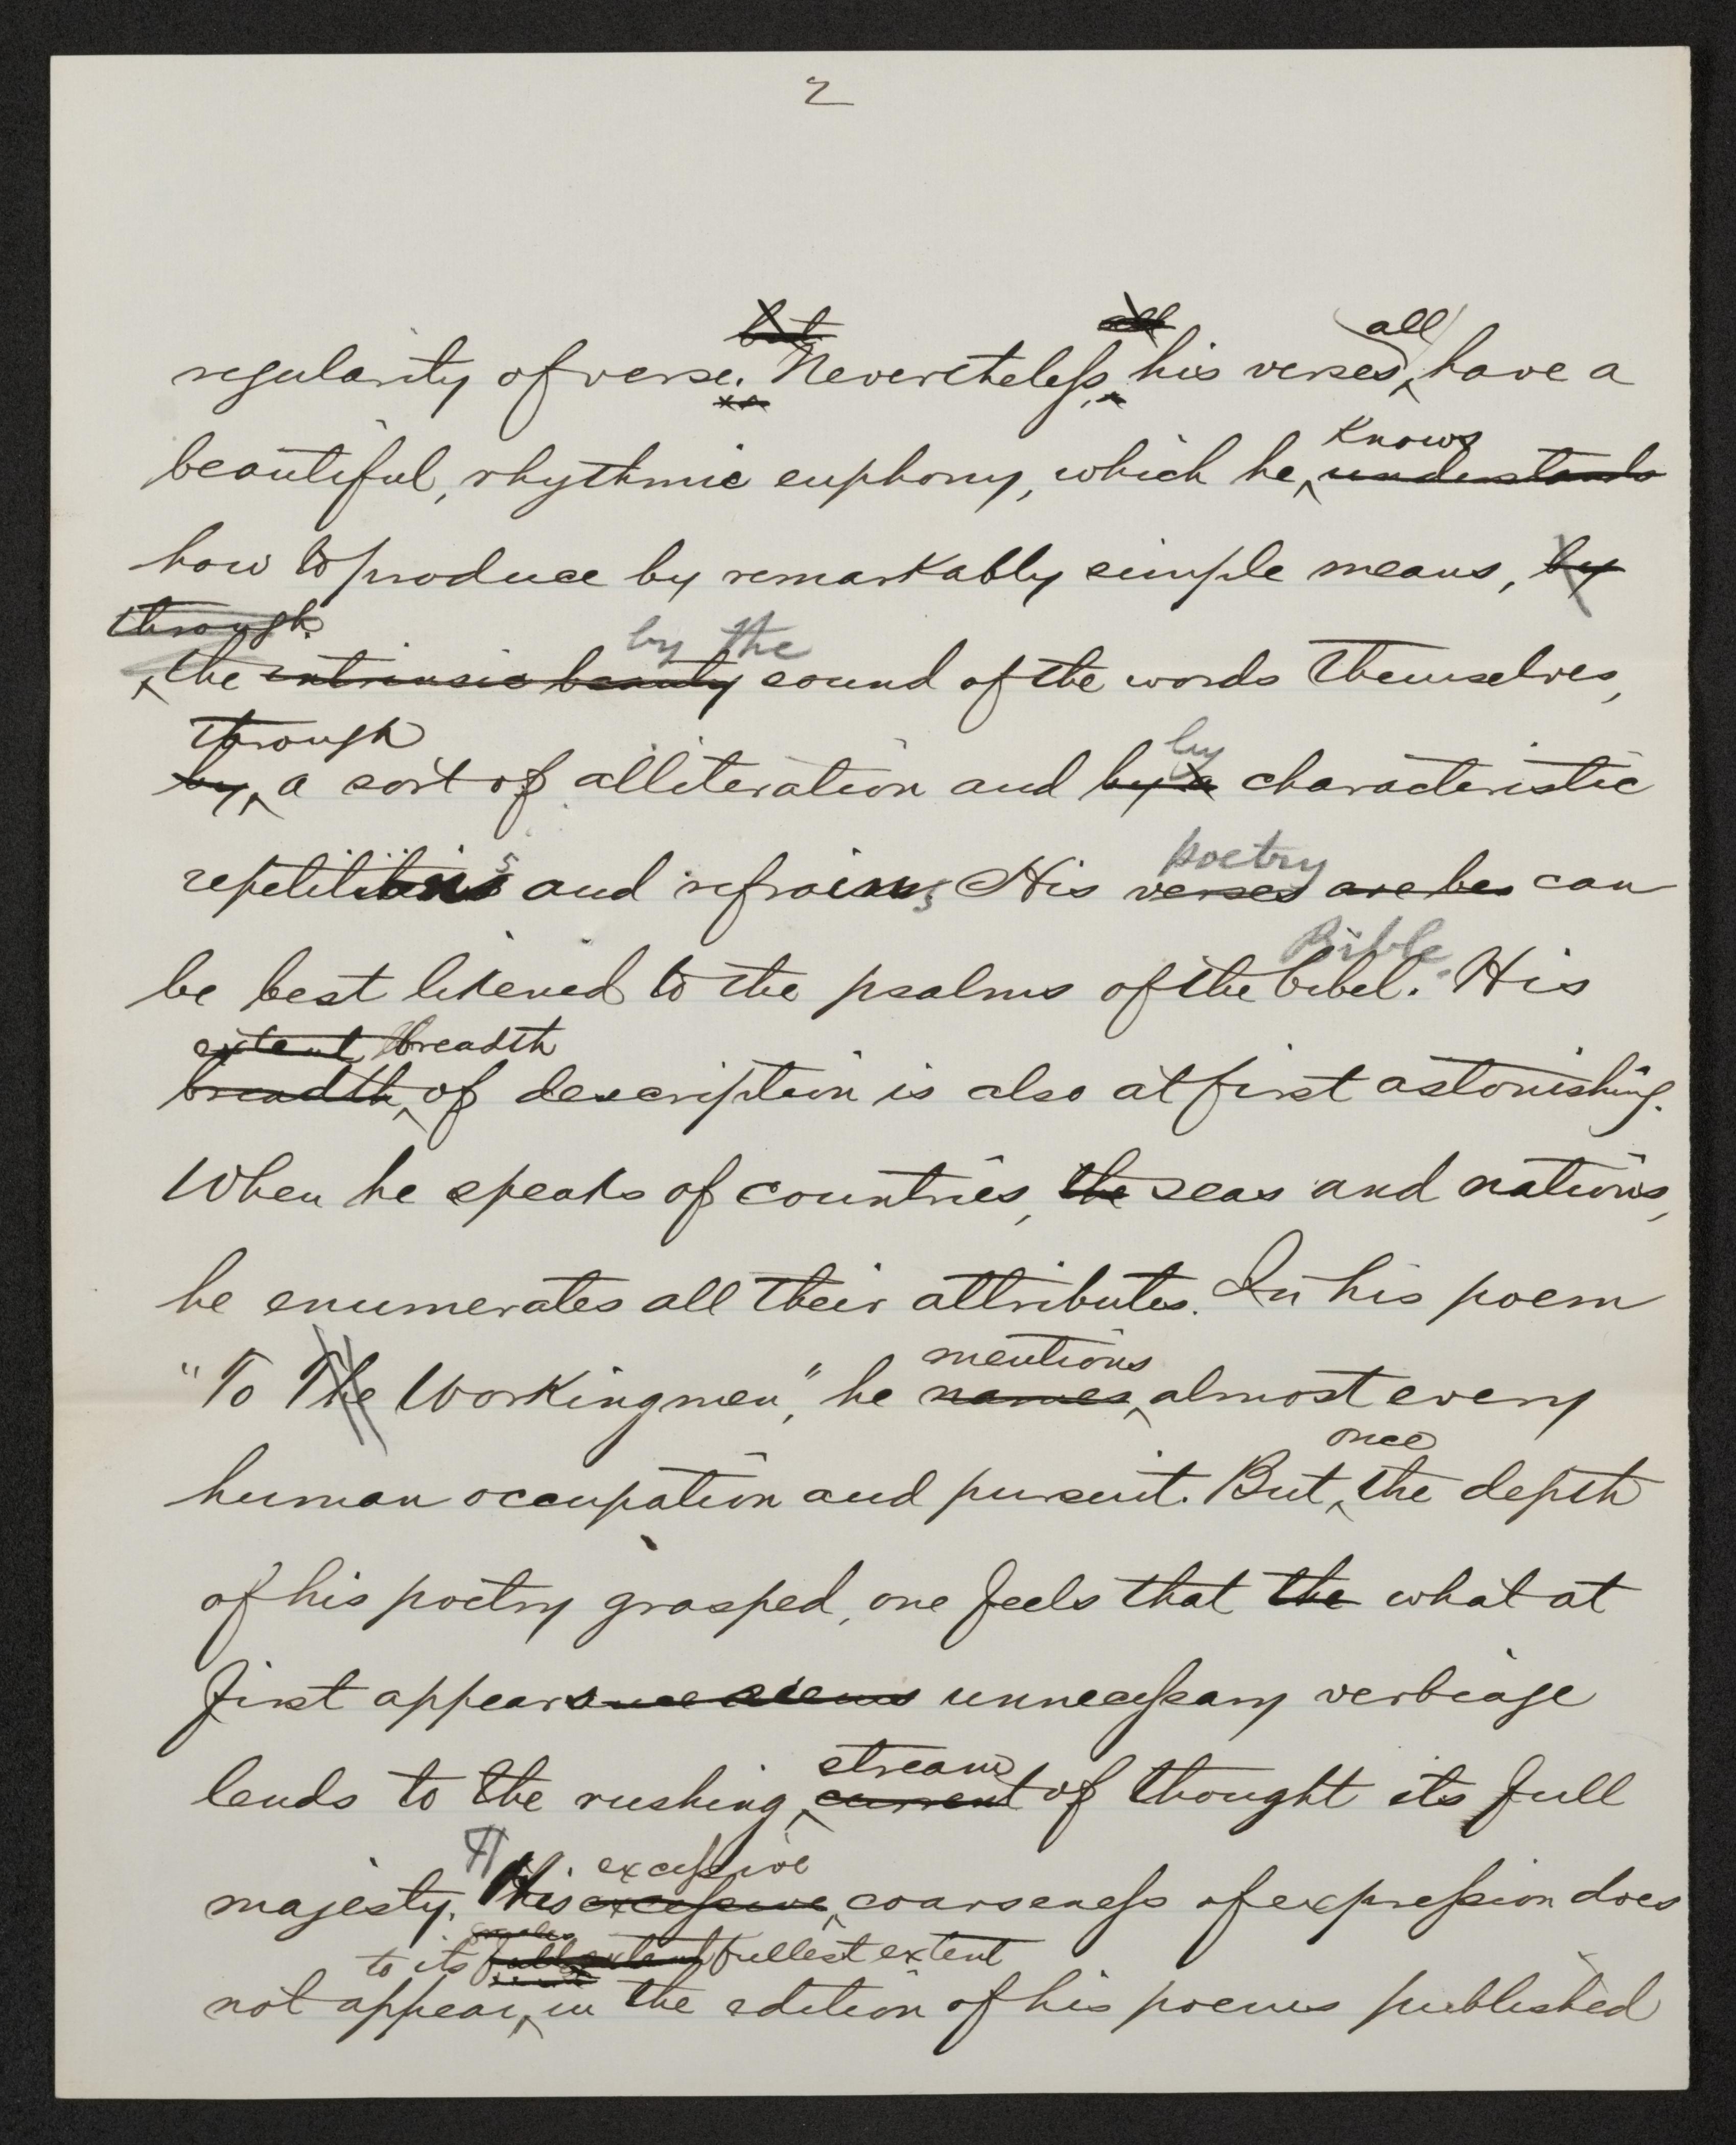 2
but all all
regularity of verse. Nevertheless, his verses, have a
knows
beautiful, rhythmic euphony, which he understands
how to produce by remarkably simple means, by
through by the
the intrinsic beauty sound of the words themselves,
through by
by a sort of alliteration and by a characteristic
poetry
repetitions and refrains; His verses are bes can
Bible.
be best likened to the psalms of the bibel. His
extent breadth
breadth of description is also at first astonishing.
When he speaks of countries, the seas and nations,
he enumerates all their attributes. In his poem
mentions
"To The Workingmen," he names almost every
once
human occupation and pursuit. But the depth
of his poetry grasped, one feels that the what at
first appearance seems unnecessary verbiage
stream
lends to the rushing current of thought its full
¶ excessive
majesty. His excessive coarseness of expression does
to its full extent fullest extent
not appear, in the edition of his poems published